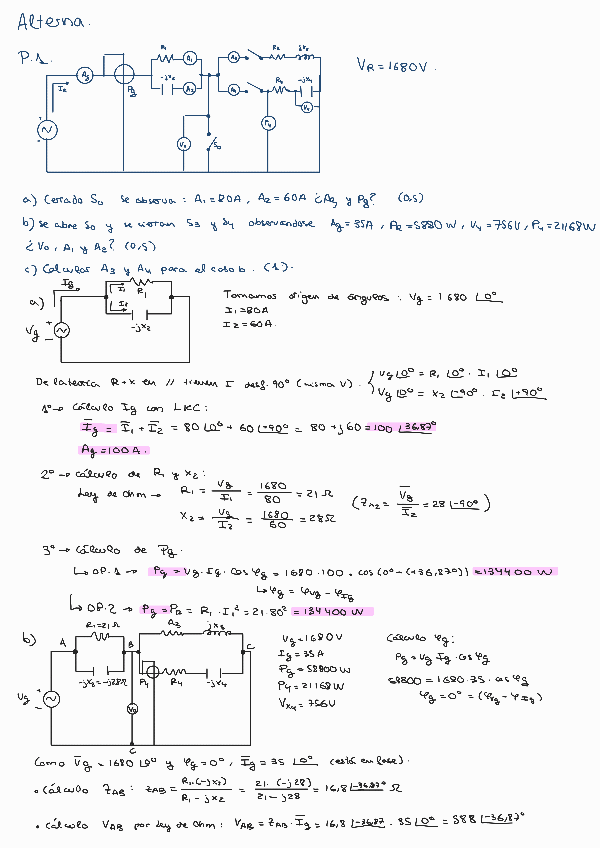 Alterna.
P.1.
VR = 1680V.
R1 A1
Ag
Ie
Pg
-jX2
A2
A3 R3 jX3
A4 R4 -jX4
V4
V0
S0
P4
a) Cerrado S0 se observa: A1 = 80A, A2 = 60A ¿Ag y Pg? (0,5)
b) se abre S0 y se cierran S3 y S4 observándose Ag = 35A, P2 = 5880 W, V4 = 756V, P4 = 21168W
¿V0, A1 y A2? (0,5)
c) Calcular A3 y A4 para el caso b. (1).
a)
Ig
I1 R1
I2
-jX2
Vg
Tomamos origen de ángulos: Vg = 1680 ∠0°
I1 = 80A
I2 = 60A.
De la teoría R + X en // tienen I desf. 90° (misma V).
Vg ∠0° = R1 ∠0° · I1 ∠0°
Vg ∠0° = X2 ∠-90° · I2 ∠+90°
1° → Cálculo Ig con LKC:
Ig = I1 + I2 = 80 ∠0° + 60 ∠+90° = 80 + j60 = 100 ∠36,87°
Ag = 100 A.
2° → Cálculo de R1 y X2:
Ley de Ohm → R1 = Vg / I1 = 1680 / 80 = 21 Ω
X2 = Vg / I2 = 1680 / 60 = 28Ω
(Z̄X2 = Vg / I2 = 28 ∠-90°)
3° → Cálculo de Pg.
↳ OP. 1 → Pg = Vg · Ig · cos φg = 1680 · 100 · cos (0° - (+36,87°)) = 134400 W
↳ φg = φVg - φIg
↳ OP. 2 → Pg = PR = R1 · I1² = 21 · 80² = 134400 W
b)
R1 = 21 Ω
A
B
C
-jX2 = -j28Ω
R3 jX3
P4 R4 -jX4
Vg
V0
C
Vg = 1680 V
Ig = 35 A
Pg = 58800 W
P4 = 21168 W
VX4 = 756V
Cálculo φg:
Pg = Vg Ig · cos φg
58800 = 1680 · 35 · cos φg
φg = 0° = (φVg - φIg)
Como Vg = 1680 ∠0° y φg = 0°, Ig = 35 ∠0° (está en fase).
• Cálculo ZAB: ZAB = R1·(-jX2) / R1 - jX2 = 21 · (-j28) / 21 - j28 = 16,8 ∠-36,87° Ω
• Cálculo VAB por Ley de Ohm: VAB = ZAB · Ig = 16,8 ∠-36,87 · 35 ∠0° = 588 ∠-36,87°